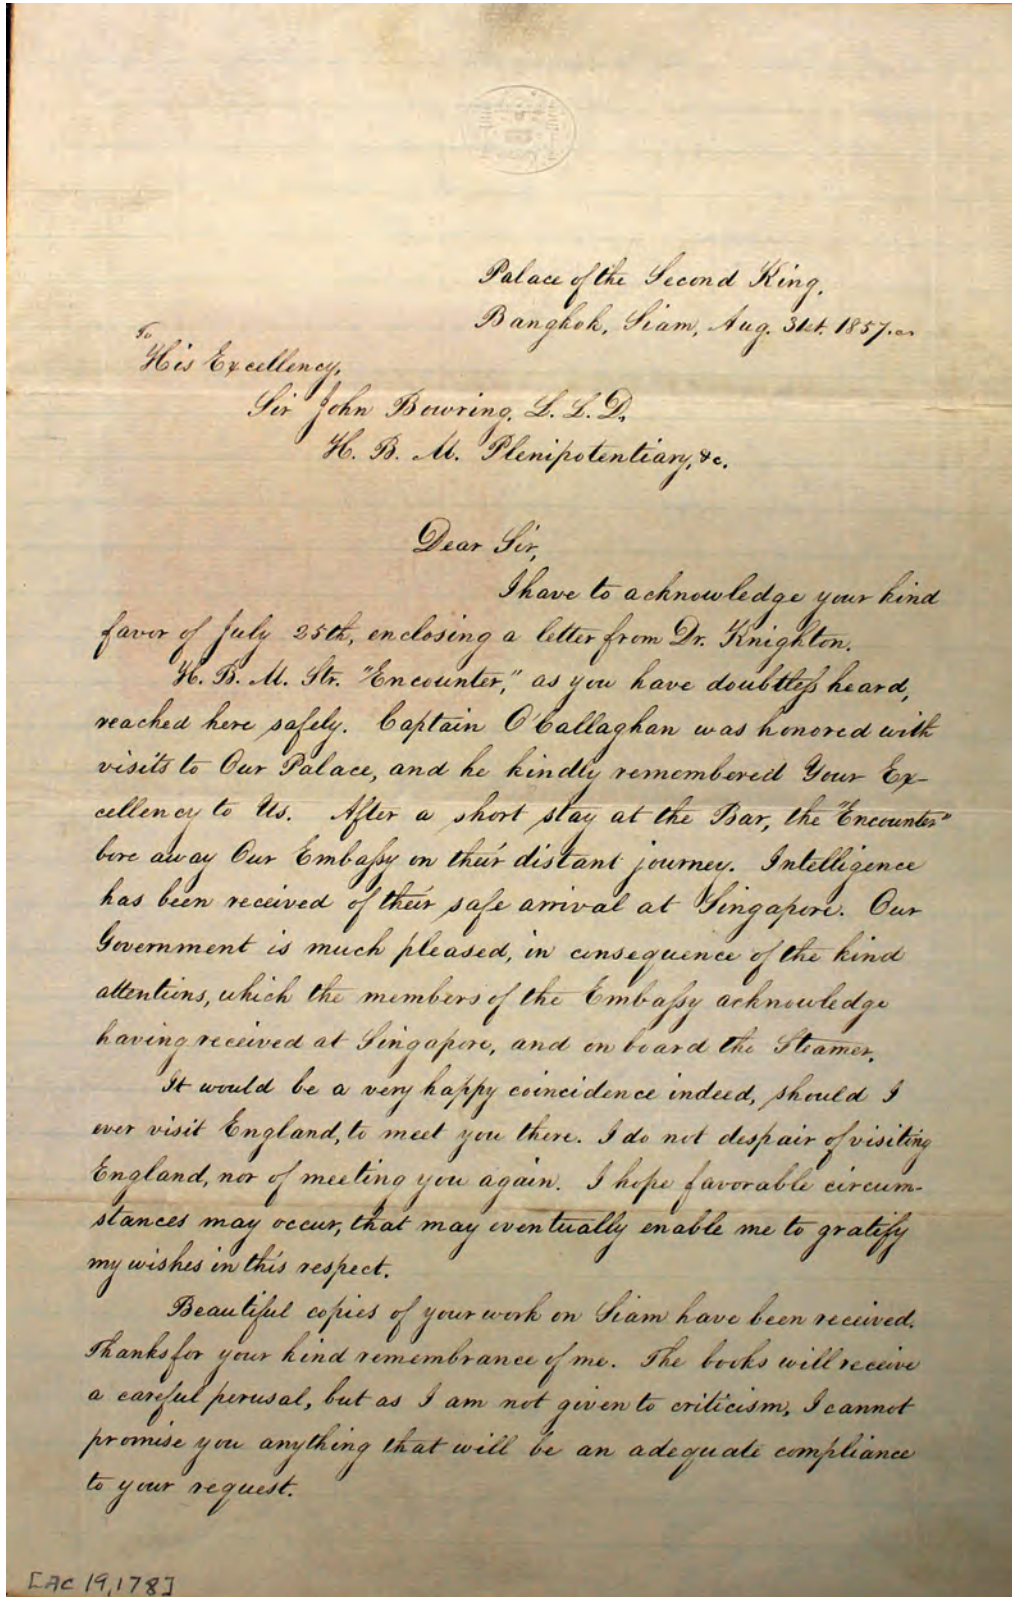 Palace of the Second King,
Bangkok, Siam, Aug. 31st. 1857.
To
His Excellency,
Sir John Bowring, L. L. D.
H. B. M. Plenipotentiary, &c.
Dear Sir,
I have to acknowledge your kind
favor of July 25th, enclosing a letter from Dr. Knighton.
H. B. M. Str. "Encounter," as you have doubtless heard,
reached here safely. Captain O'Callaghan was honored with
visits to Our Palace, and he kindly remembered Your Ex-
cellency to Us. After a short stay at the Bar, the "Encounter"
bore away Our Embassy on their distant journey. Intelligence
has been received of their safe arrival at Singapore. Our
Government is much pleased, in consequence of the kind
attentions, which the members of the Embassy acknowledge
having received at Singapore, and on board the Steamer.
It would be a very happy coincidence indeed, should I
ever visit England, to meet you there. I do not despair of visiting
England, nor of meeting you again. I hope favorable circum-
stances may occur, that may eventually enable me to gratify
my wishes in this respect.
Beautiful copies of your work on Siam have been received.
Thanks for your kind remembrance of me. The books will receive
a careful perusal, but as I am not given to criticism, I cannot
promise you anything that will be an adequate compliance
to your request.
[AC 19,178]